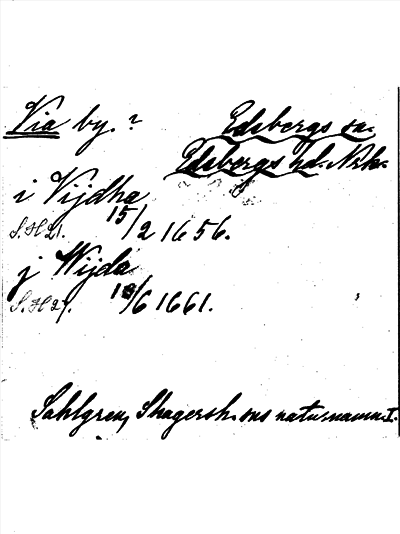 Via by. ? Edsbergs sn.
Edsbergs hd. Nrk.
i Vijdha
S.H 21. 15/2 1656.
j Wijda
S.H 27. 18/6 1661.
Sahlgren, Skagersh. sns naturnamn I.